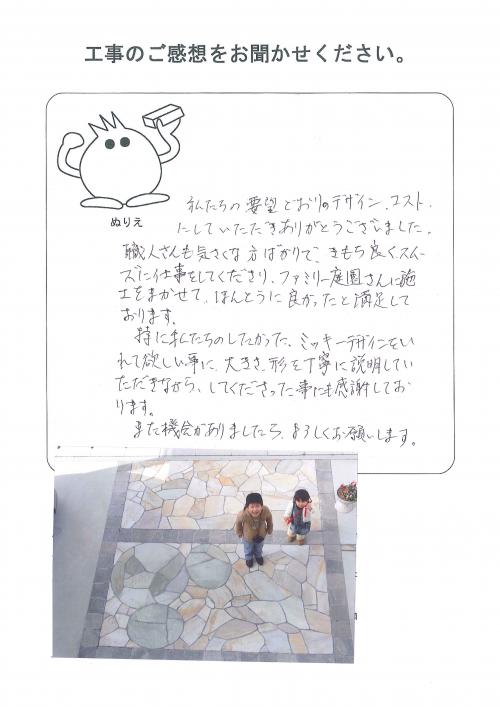 工事のご感想をお聞かせください。
ぬりえ
私たちの要望どおりのデザイン、コスト、
にしていただきありがとうございました。
職人さんも気さくな方ばかりで、きもち良くスムー
ズに仕事をしてくださり、ファミリー庭園さんに施
工をまかせて、ほんとうに良かったと満足して
おります。
特に私たちのしたかった、ミッキーデザインをい
れて欲しい事に、大きさ、形を丁寧に説明してい
ただきながら、してくださった事にも感謝してお
ります。
また機会がありましたら、よろしくお願いします。